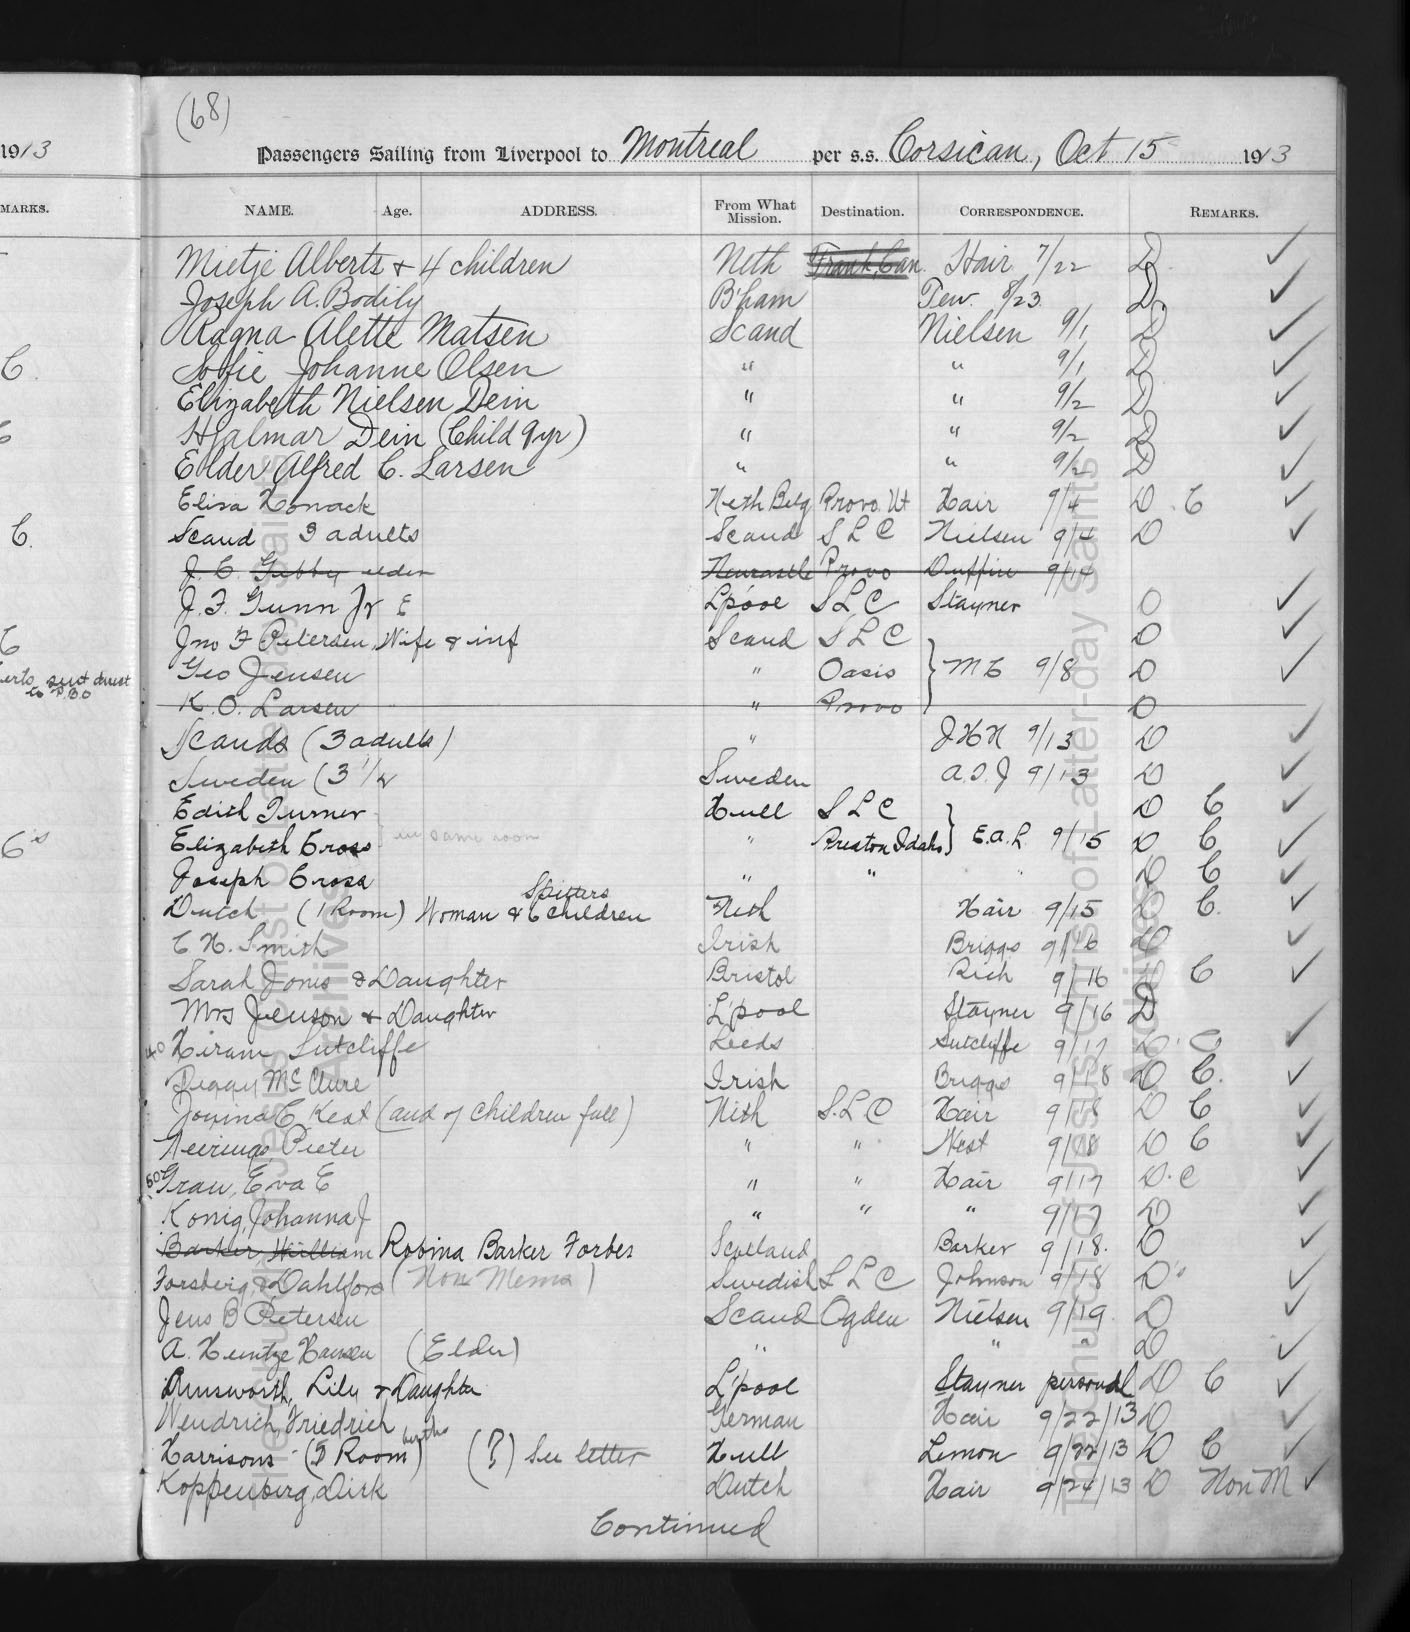 (68)
1913
Passengers Sailing from Liverpool to Montreal per s.s. Corsican, Oct 15 1913
MARKS.
NAME. Age. ADDRESS. From What Mission. Destination. CORRESPONDENCE. REMARKS.
Mietje Alberts & 4 children Neth Frank, Can. Hair 7/22 D ✓
Joseph A. Bodily B'ham Tew. 8/23 D ✓
Ragna Alette Matsen Scand Nielsen 9/1 D ✓
C. Sofie Johanne Olsen " " 9/1 D ✓
Elizabeth Nielsen Dein " " 9/2 D ✓
C Hjalmar Dein (Child 9yr) " " 9/2 D ✓
Elder Alfred C. Larsen " " 9/2 D ✓
Elisa Honack Neth Belg Provo Ut Hair 9/4 D. C ✓
C. Scand 3 adults Scand S L C Nielsen 9/4 D ✓
J. C. Gubby elder Newcastle Provo Duffin 9/14
J. F. Gunn Jr E L'pool S L C Stayner D ✓
C Jno F Petersen, Wife & inf Scand S L C D ✓
Geo Jensen " Oasis } M C 9/8 D ✓
sent direct to P.B.O
K. O. Larsen " Provo D
Scands (3 adults) " J H N 9/13 D ✓
Sweden (3 1/2 Sweden A.S.J 9/13 D ✓
Edith Turner Hull S L C D C ✓
C's Elizabeth Cross in same room " Preston Idaho } E.A.L 9/15 D C ✓
Joseph Cross " " " D C ✓
Spitters
Dutch (1 Room) Woman & 6 children Neth Hair 9/15 D C. ✓
C H. Smith Irish Briggs 9/16 D ✓
Sarah Jones & Daughter Bristol Rich 9/16 D C ✓
Mrs Jenson & Daughter L'pool Stayner 9/16 D
40 Hiram Sutcliffe Leeds Sutcliffe 9/17 D. C ✓
Peggy McClure Irish Briggs 9/18 D C. ✓
Jovina C Kest (and 7 children full) Neth S.L C Hair 9/18 D C ✓
Neirings, Pieter " " West 9/18 D C ✓
50 Grau, Eva E " " Hair 9/17 D. C ✓
Konig, Johanna J " " " 9/17 D ✓
Barker William Robina Barker Forbes Scotland Barker 9/18. D ✓
Forsberg & Dahlfors (Non Mems) Swedish S L C Johnson 9/18 D" ✓
Jens B Petersen Scand Ogden Nielsen 9/19 D ✓
A. Heintze Hansen (Elder) " " " D ✓
Ainsworth, Lily & Daughter L'pool Stayner personal D C ✓
Wendrich, Friedrich German Hair 9/22/13 D ✓
berths
Harrisons (5 Room) (?) See letter Hull Lemon 9/22/13 D C ✓
Koppenberg, Dirk Dutch Hair 9/24/13 D Non M ✓
Continued